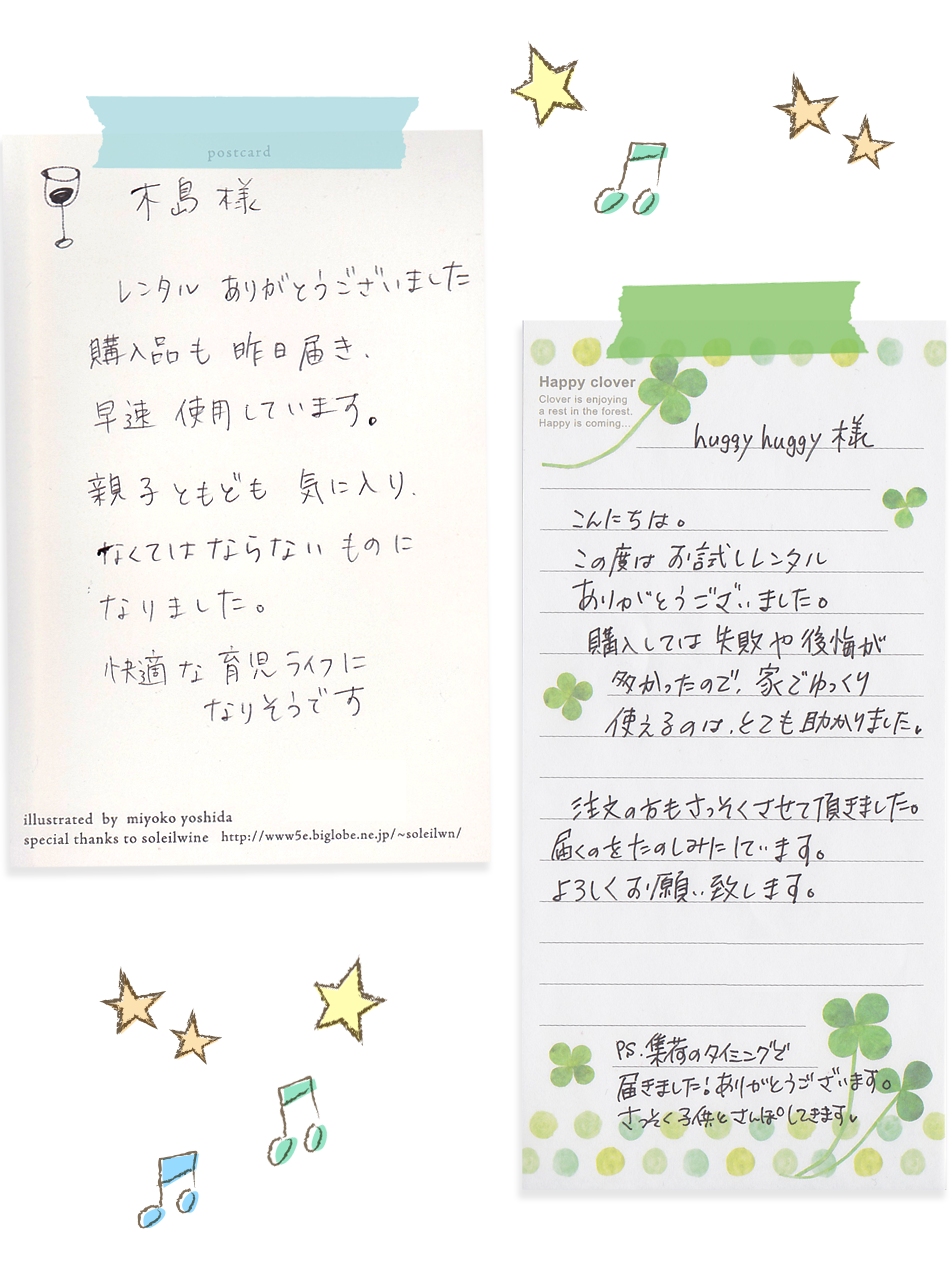 postcard
木島 様
レンタル ありがとうございました
購入品も 昨日届き、
早速 使用しています。
親子ともども 気に入り、
なくてはならない ものに
なりました。
快適な育児ライフに
なりそうです
illustrated by miyoko yoshida
special thanks to soleilwine http://www5e.biglobe.ne.jp/~soleilwn/
Happy clover
Clover is enjoying
a rest in the forest.
Happy is coming...
huggy huggy 様
こんにちは。
この度は お試しレンタル
ありがとうございました。
購入しては 失敗や後悔が
多かったので、家でゆっくり
使えるのは、とても助かりました。
注文の方もさっそくさせて頂きました。
届くのをたのしみにしています。
よろしくお願い致します。
PS.集荷のタイミングで
届きました!ありがとうございます。
さっそく子供とさんぽしてきます。